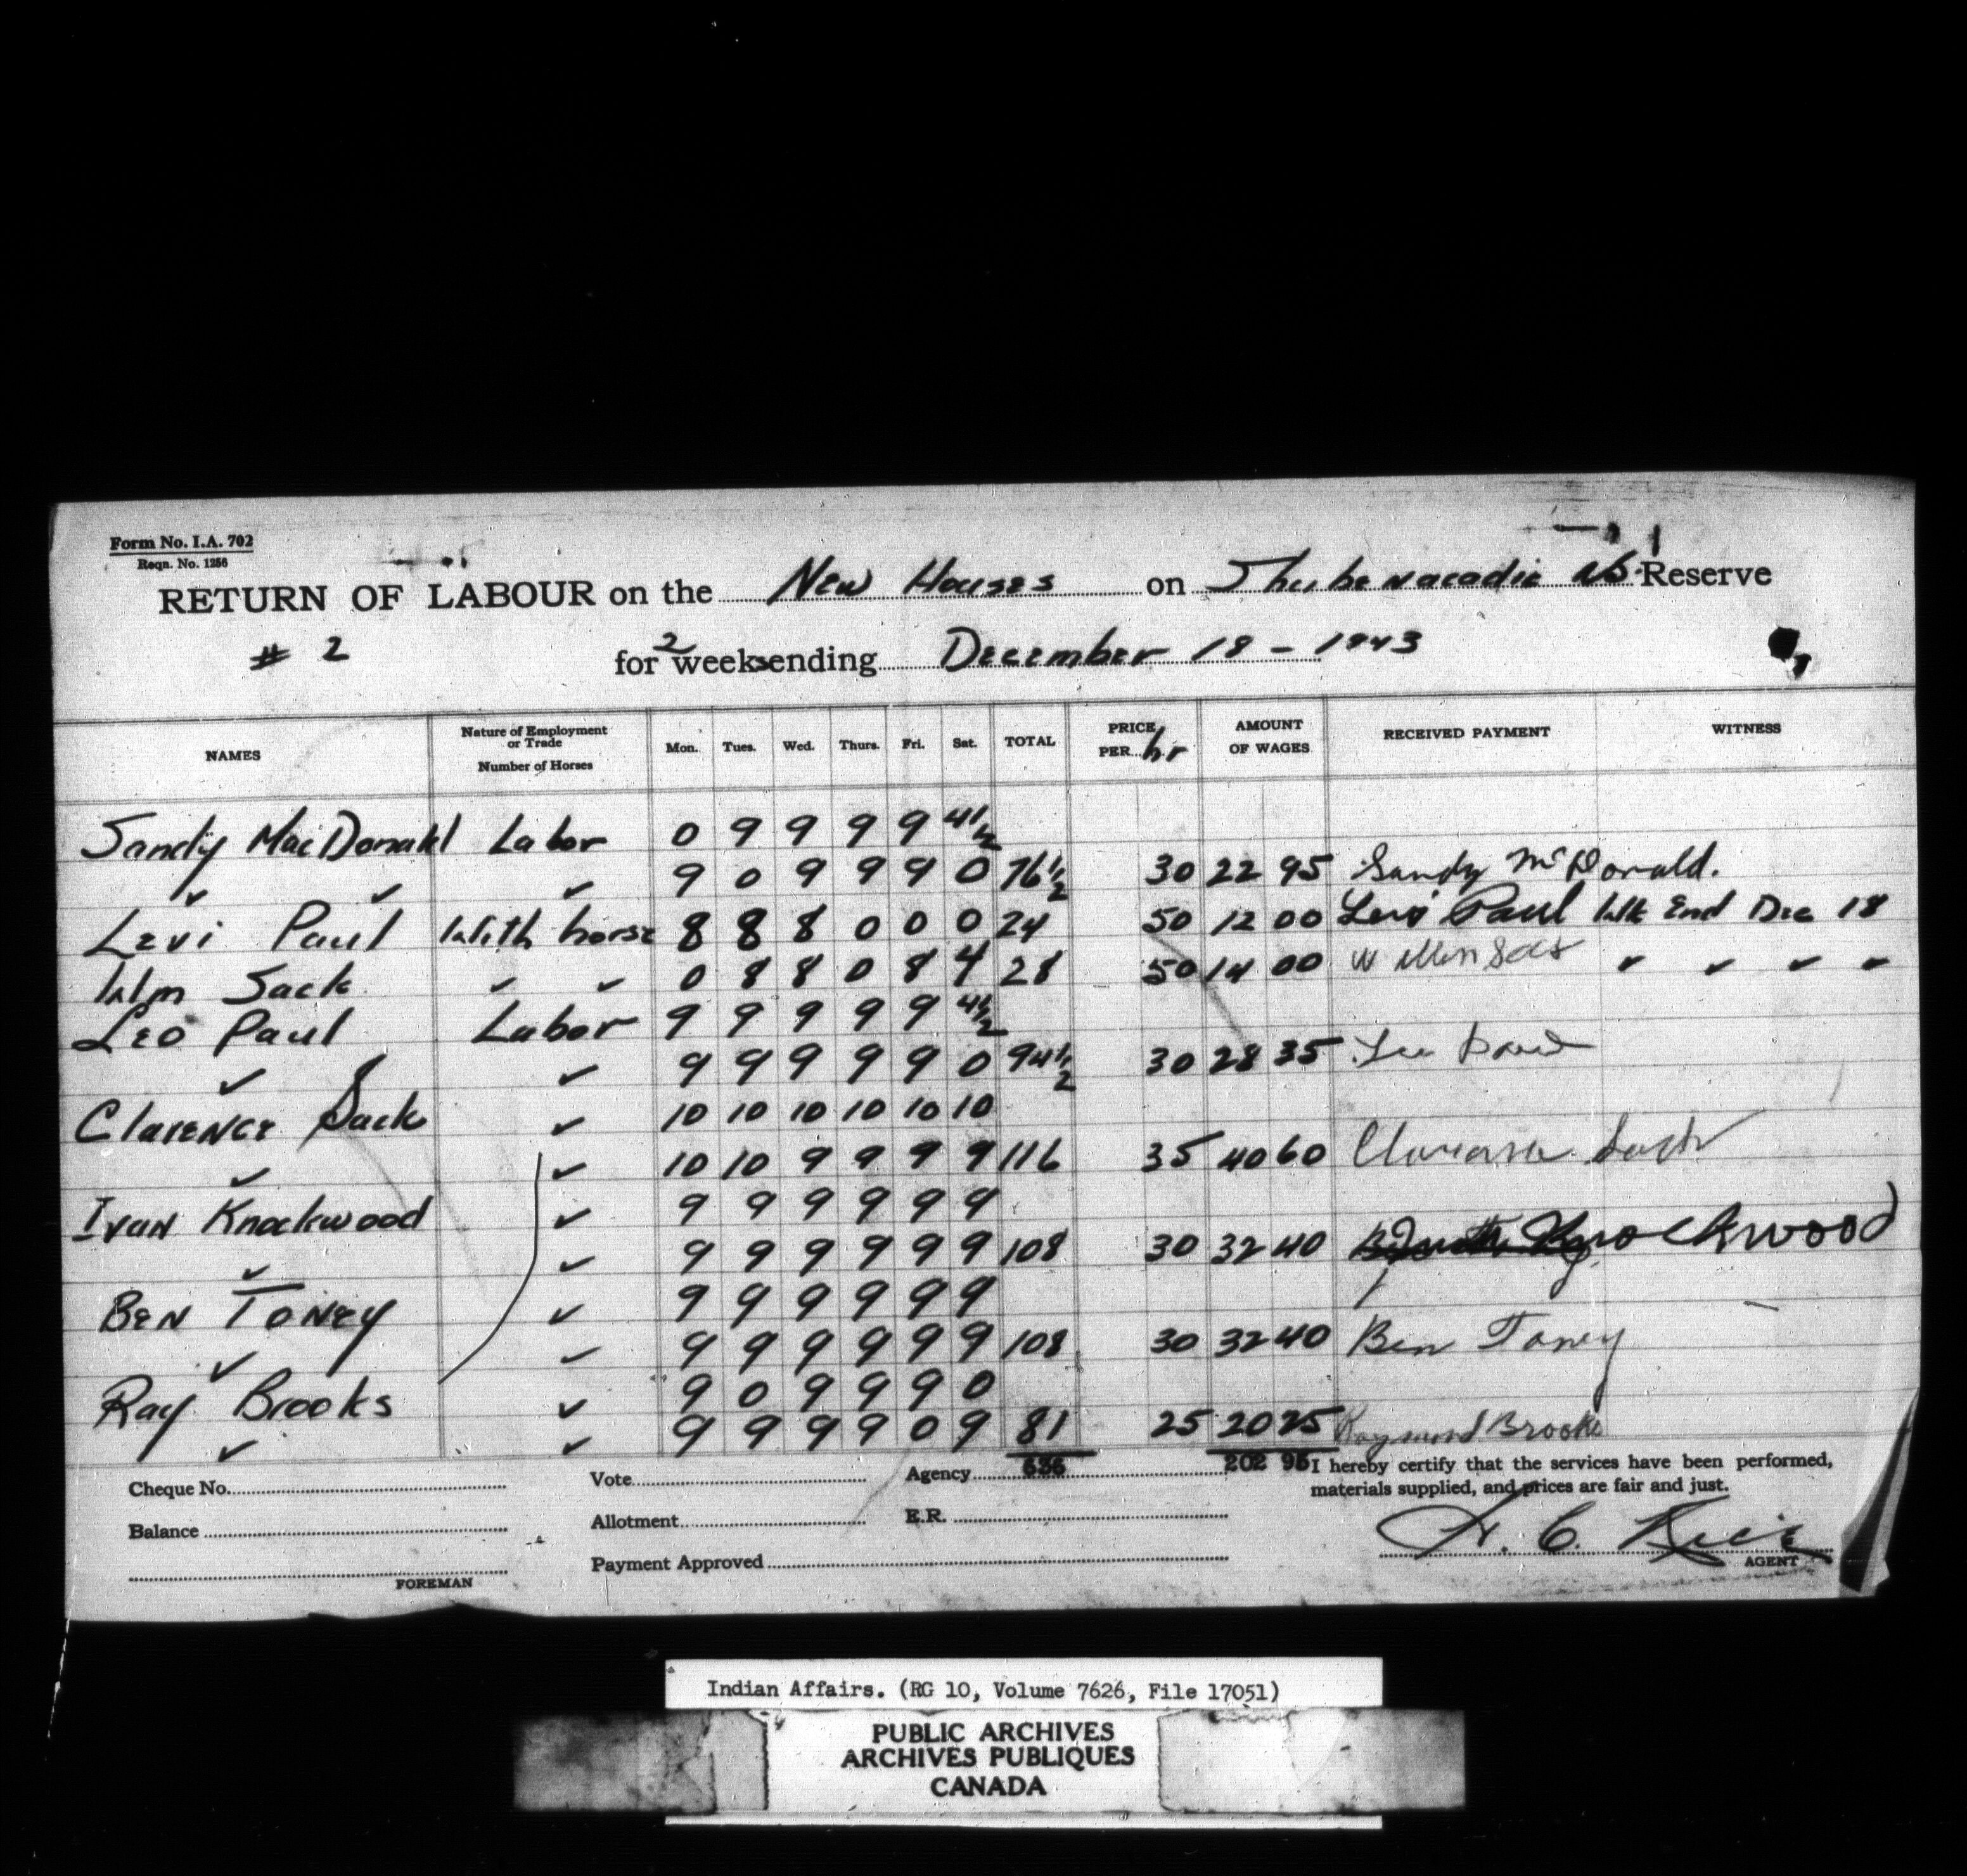 Form No. I.A. 702
Reqn. No. 1256
RETURN OF LABOUR on the New Houses on Shubenacadie Reserve
# 2 for 2 weeks ending December 18 - 1943
NAMES Nature of Employment or Trade Number of Horses Mon. Tues. Wed. Thurs. Fri. Sat. TOTAL PRICE PER hr AMOUNT OF WAGES RECEIVED PAYMENT WITNESS
Sandy MacDonald Labor 0 9 9 9 9 4½
✓ ✓ ✓ 9 0 9 9 9 0 76½ 30 22 95 Sandy McDonald.
Levi Paul With horse 8 8 8 0 0 0 24 50 12 00 Levi Paul Wk End Dec 18
Wm Sack ✓ ✓ 0 8 8 0 8 4 28 50 14 00 ✓ ✓ ✓ ✓
Leo Paul Labor 9 9 9 9 9 4½
✓ ✓ 9 9 9 9 9 0 94½ 30 28 35 Leo Paul
Clarence Sack ✓ 10 10 10 10 10 10
✓ ✓ 10 10 9 9 9 9 116 35 40 60 Clarence Sack
Ivan Knockwood ✓ 9 9 9 9 9 9
✓ ✓ 9 9 9 9 9 9 108 30 32 40 Knockwood
Ben Toney ✓ 9 9 9 9 9 9
✓ ✓ 9 9 9 9 9 9 108 30 32 40 Ben Toney
Ray Brooks ✓ 9 0 9 9 9 0
✓ ✓ 9 9 9 9 0 9 81 25 20 25 Raymond Brooks
636 202 95
Cheque No. Vote Agency I hereby certify that the services have been performed,
materials supplied, and prices are fair and just.
Balance Allotment E.R.
Payment Approved
FOREMAN AGENT
Indian Affairs. (RG 10, Volume 7626, File 17051)
PUBLIC ARCHIVES
ARCHIVES PUBLIQUES
CANADA